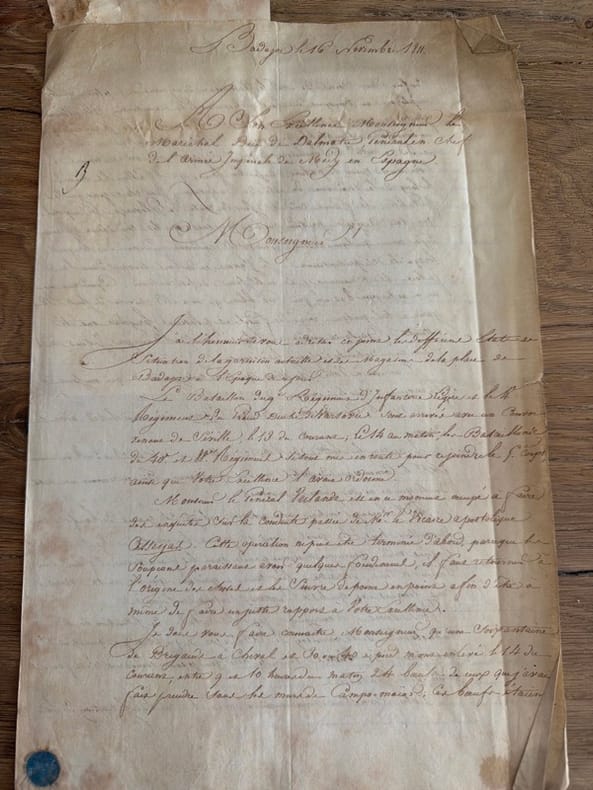 Badajoz le 16 Novembre 1811
A Son Excellence Monseigneur le
Maréchal Duc de Dalmatie Général en Chef
de l'Armée Impériale du Midy en Espagne
Monseigneur
J'ai l'honneur de vous adresser ci joint les différens Etats de
Situation de la garnison actuelle et des Magasins de la place de
Badajoz à l'Epoque de ce jour
Le Bataillon du 9e Régiment d'Infanterie Légère et le
Régiment du Grand Duché de Varsovie sont arrivés avec un Convoi
venant de Séville le 13 du Courant; le 14 au matin les Bataillons
de 40e et 88e Régiment se sont mis en route pour rejoindre le 5e Corps
ainsi que Votre Excellence l'avait ordonné.
Monsieur le Général est en ce moment occupé à faire
des enquêtes sur la conduite passée de Mr. le Vicaire apostolique
Cette opération n'a pu être terminée d'abord, parceque les
Soupçons paraissans avoir quelques fondemens, il faut retourner à
l'origine des et les Suivre de point en point afin d'être à
même de faire un juste rapport à Votre Excellence.
Je dois vous faire connaitre, Monseigneur, qu'une Soixantaine
de Brigands à Cheval et 30 à 40 à pied m'ont enlevé le 14 du
Courant, entre 9 et 10 heures du matin, 24 bœufs de ceux que j'avais
fait prendre sous les murs de Campo-maior; ces bœufs étaient